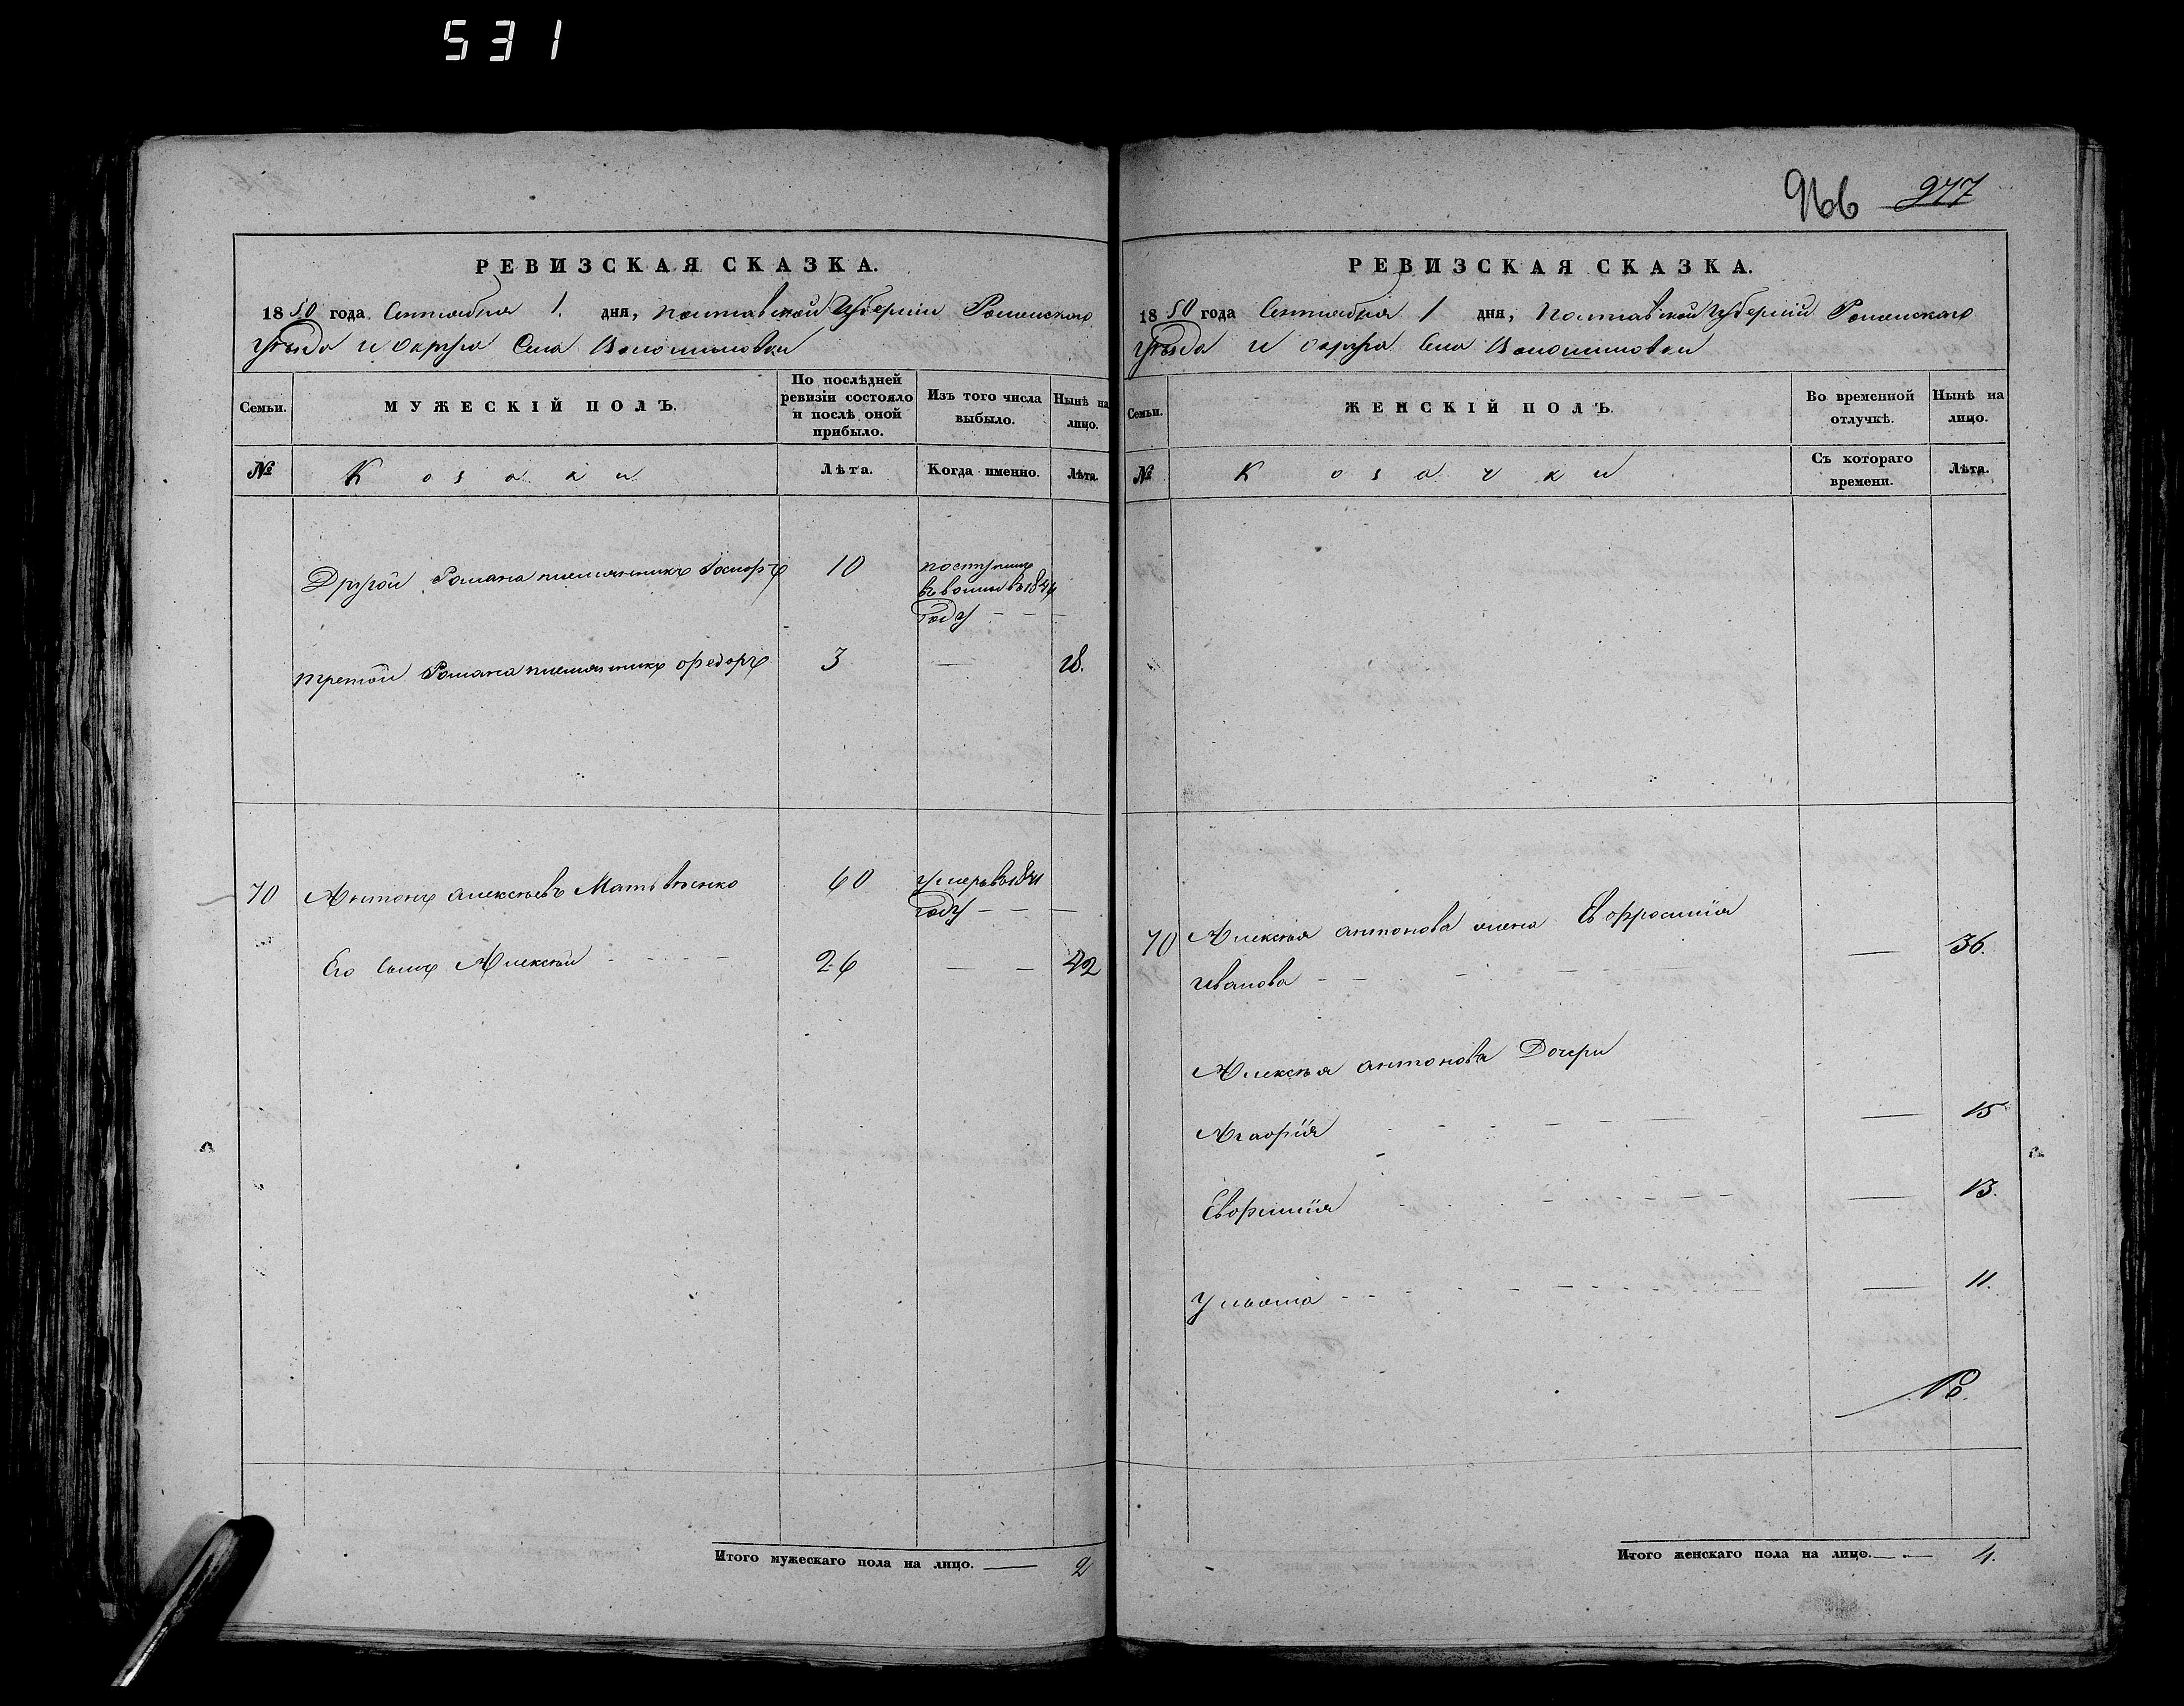 531
966 977
РЕВИЗСКАЯ СКАЗКА.
1850 года Сентября 1 дня, Полтавской Губерніи Роменскаго
уѣзда и округа Села Волошиновки
Семьи.
МУЖЕСКІЙ ПОЛЪ.
По послѣдней ревизіи состояло и послѣ оной прибыло.
Изъ того числа выбыло.
Нынѣ на лицо.
№
Козаки
Лѣта.
Когда именно.
Лѣта.
Другой Романа племянникъ 10 поступилъ
въ 1844
году
третой Романа племянникъ Федоръ 3 — 18.
70 Антонъ Алексѣевъ Матвѣенко 60 умеръ въ 1841
году
Его сынъ Алексѣй 26 — 42
Итого мужескаго пола на лицо. — 2
РЕВИЗСКАЯ СКАЗКА.
1850 года Сентября 1 дня, Полтавской Губерніи Роменскаго
уѣзда и округа Села Волошиновки
Семьи.
ЖЕНСКІЙ ПОЛЪ.
Во временной отлучкѣ.
Нынѣ на лицо.
№
Козачки
Съ котораго времени.
Лѣта.
70 Алексѣя Антонова жена Евфросинія
Иванова — 36.
Алексѣя Антонова Дочери
Агафія — 15
Евфимія — 13.
Ульяна — 11.
Итого женскаго пола на лицо. — 4.